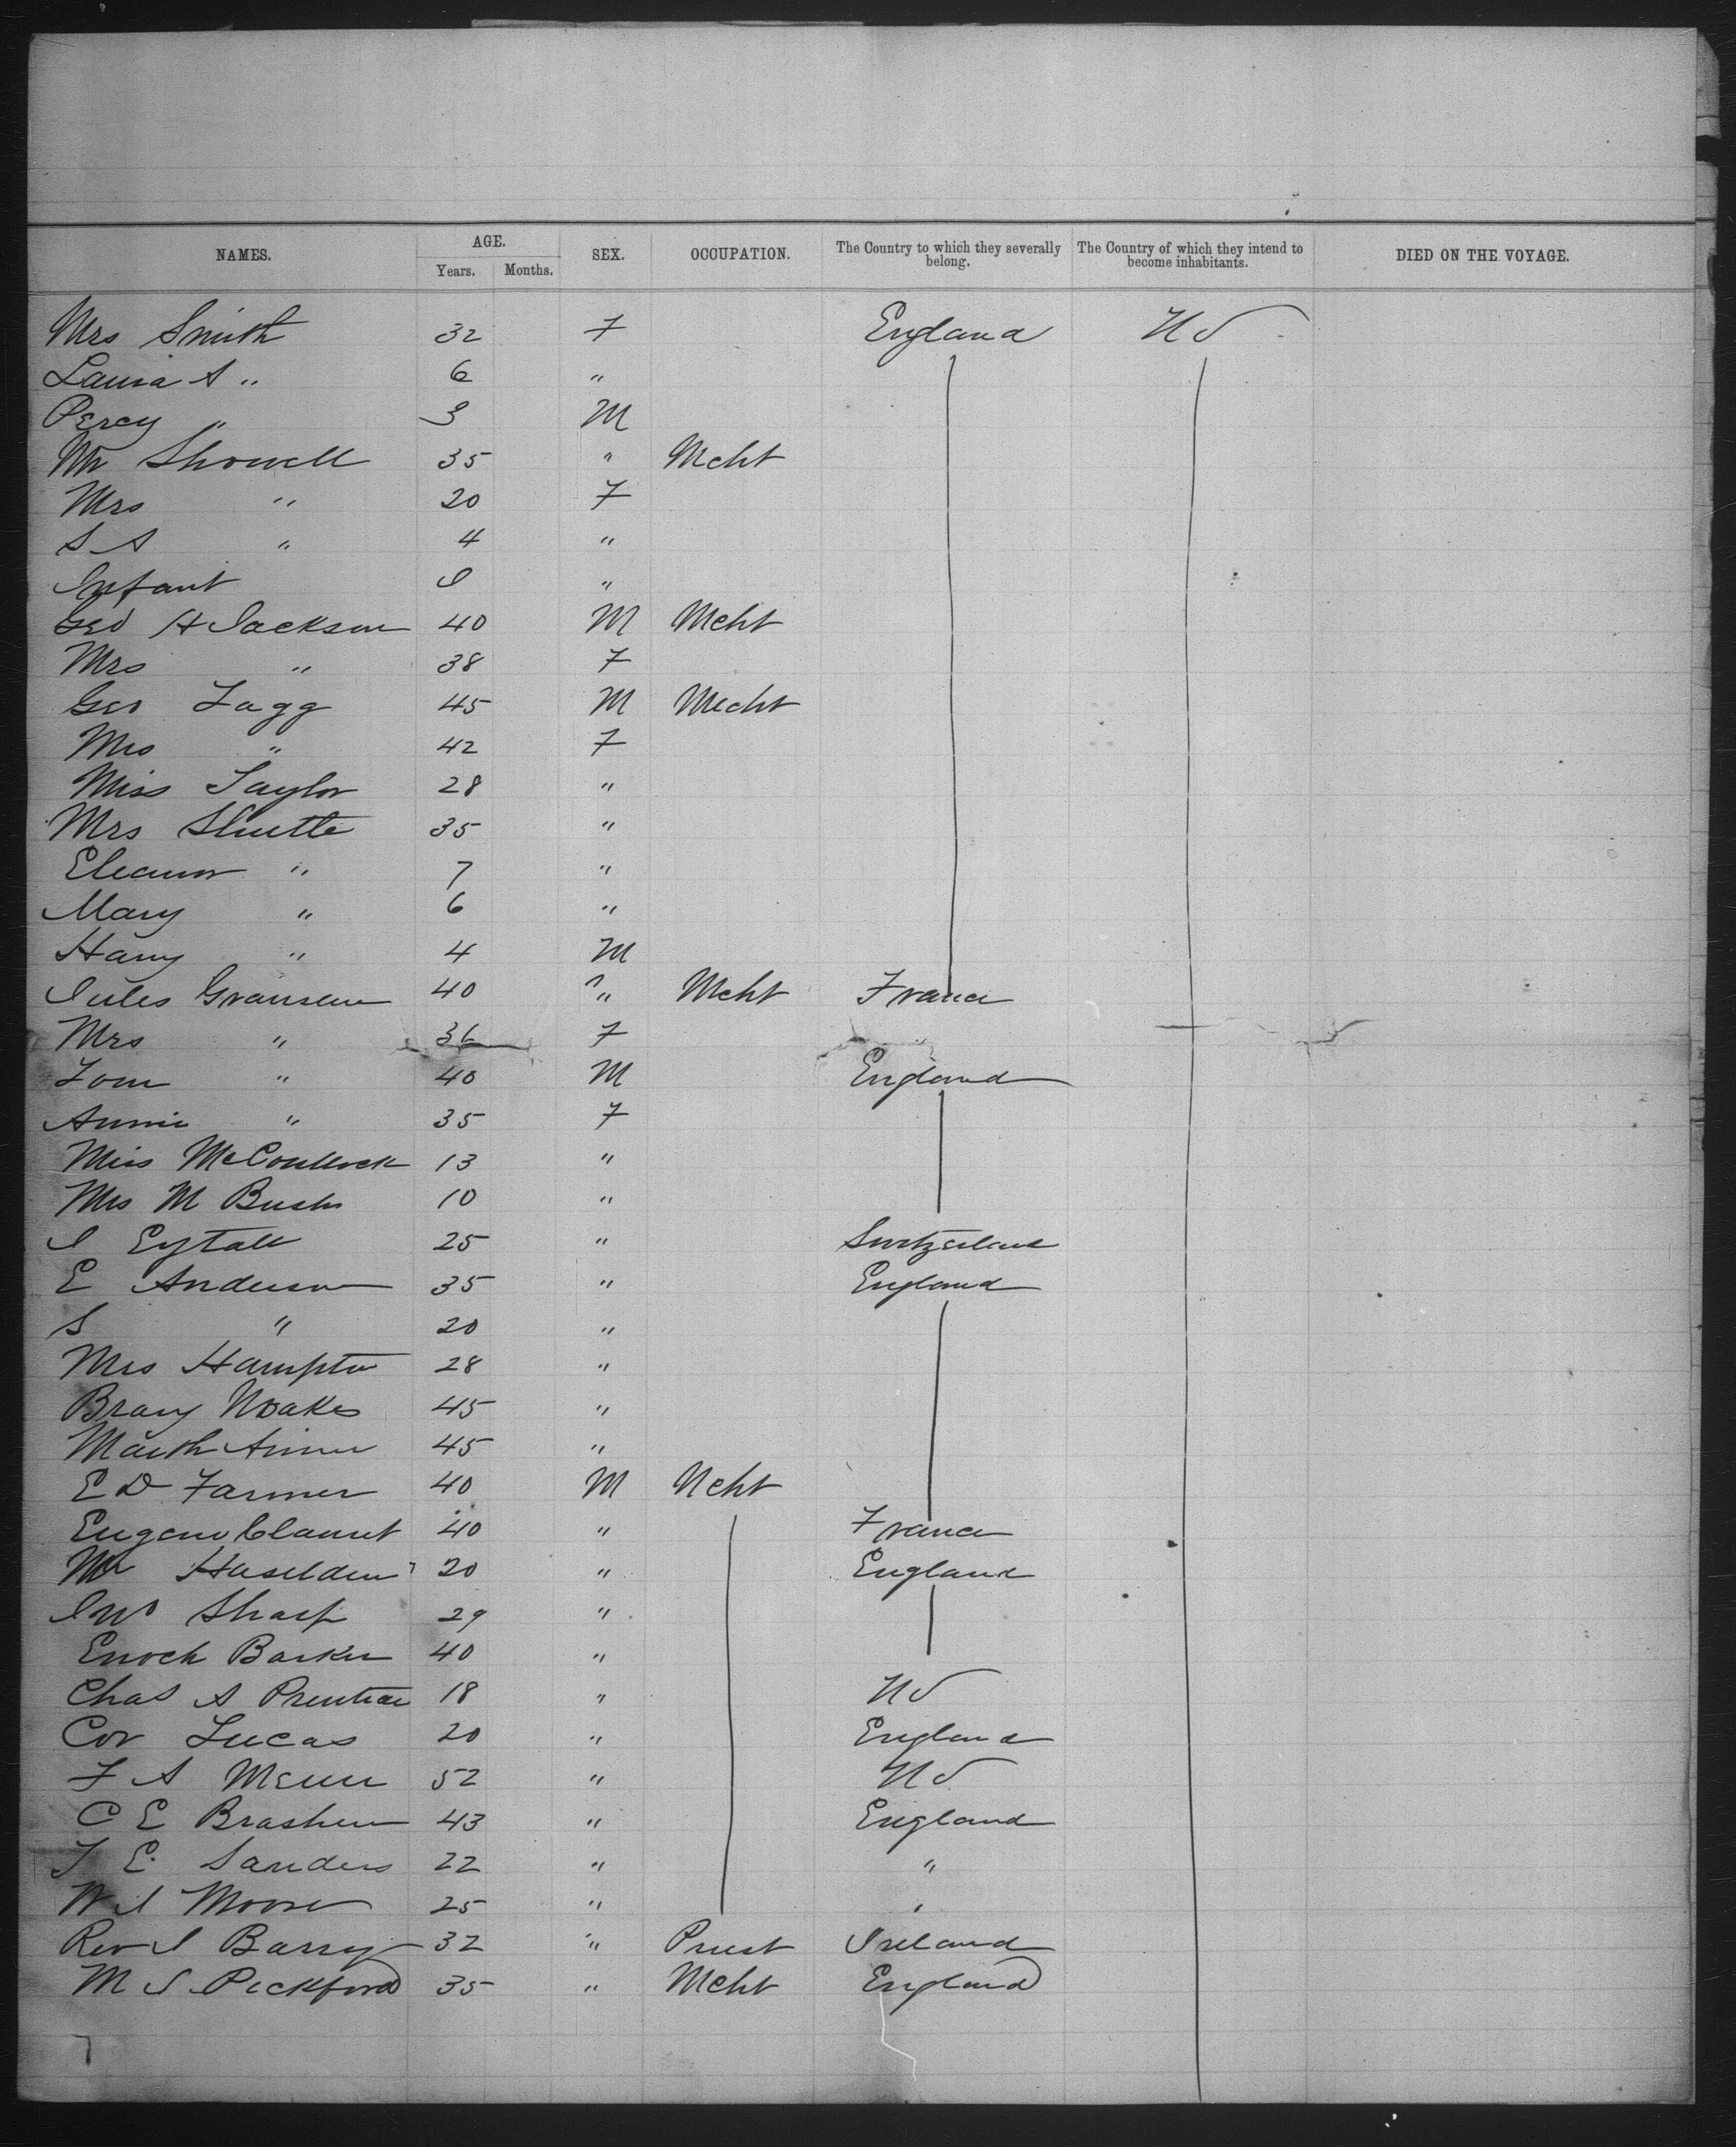 NAMES. AGE. SEX. OCCUPATION. The Country to which they severally belong. The Country of which they intend to become inhabitants. DIED ON THE VOYAGE.
Years. Months.
Mrs Smith 32 F England US
Laura A " 6 "
Percy " 3 M
Mr Showell 35 " Mcht
Mrs " 20 F
S A " 4 "
Infant "
Geo H Jackson 40 M Mcht
Mrs " 38 F
Geo Fagg 45 M Mecht
Mrs " 42 F
Miss Taylor 28 "
Mrs Shutte 35 "
Eleanor " 7 "
Mary " 6 "
Harry " 4 M
Jules 40 " Mcht France
Mrs " 36 F
Tom " 40 M England
Annie " 35 F
Miss McCoullock 13 "
Mrs M Bush 10 "
25 " Switzerland
E Anderson 35 " England
S " 20 "
Mrs Hampton 28 "
Noakes 45 "
45 "
E D Farmer 40 M Mcht
Eugene 40 " France
Mr Haselden 20 " England
Jno Sharp 29 "
Enoch Barker 40 "
Chas A Prentice 18 " US
Cor Lucas 20 " England
F A 52 " US
C E Brasher 43 " England
T E Sanders 22 " "
W J Moore 25 " "
Rev J Barry 32 " Priest Ireland
M S Pickford 35 " Mcht England